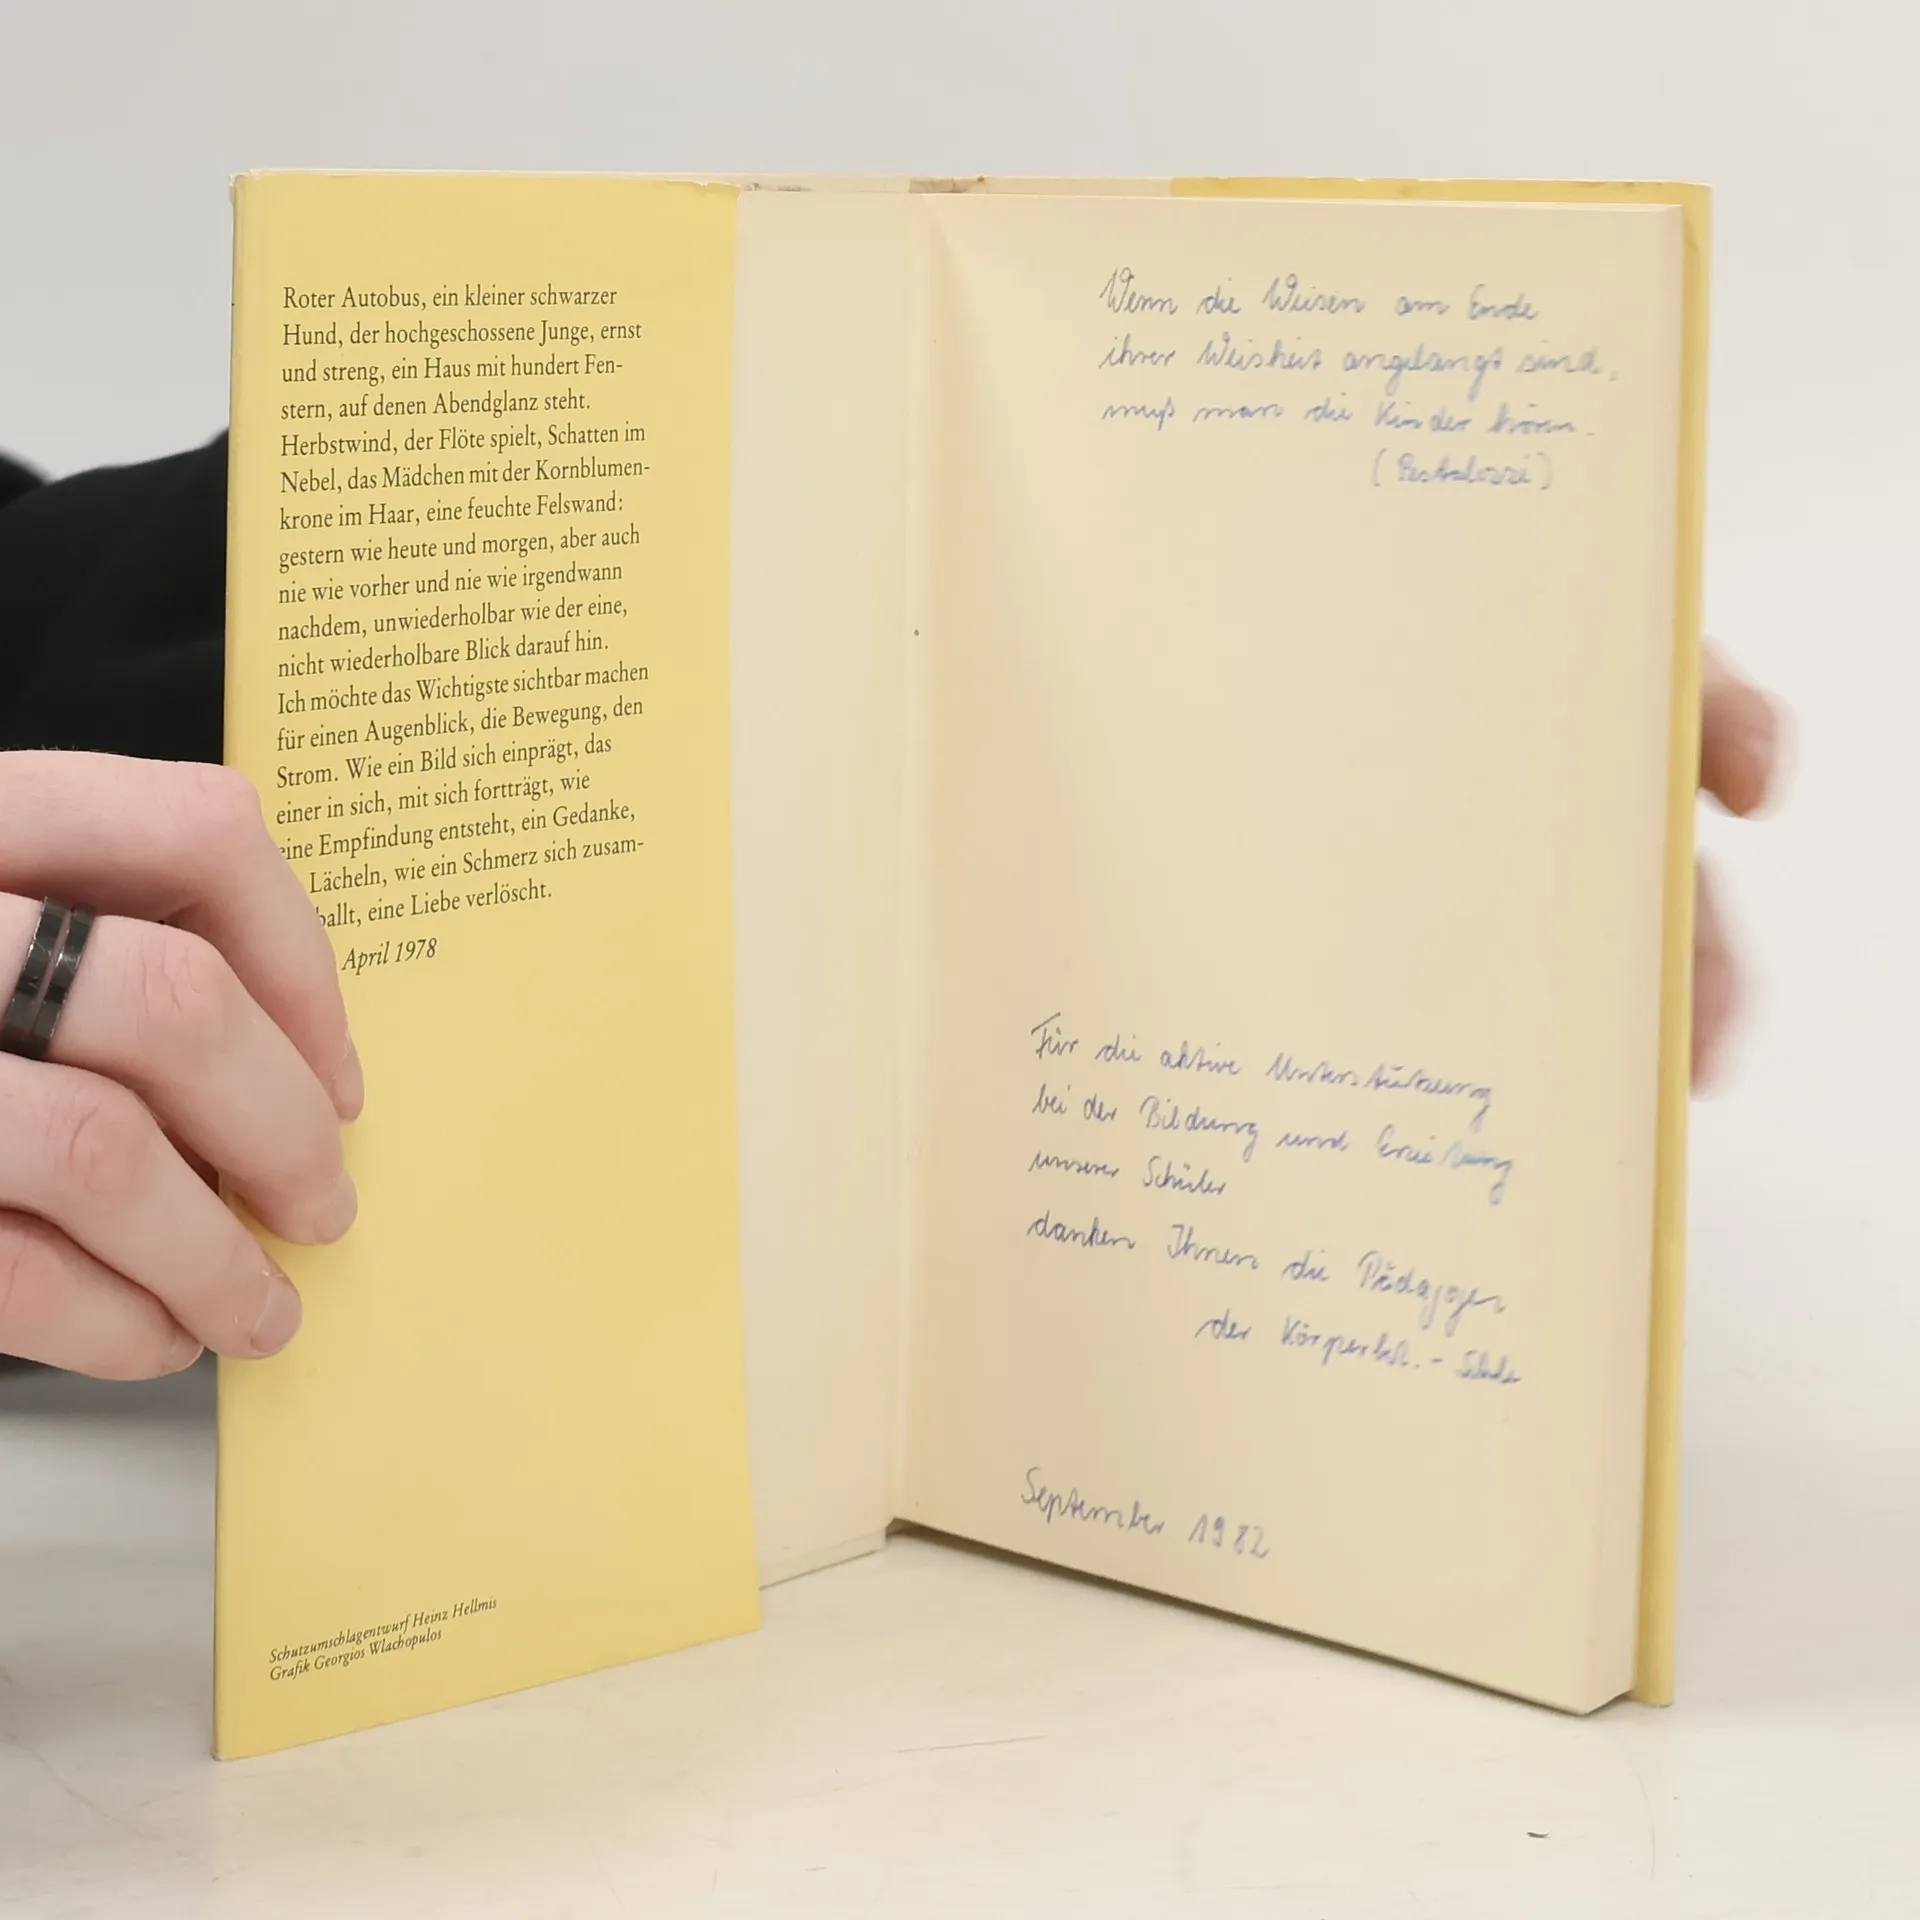 Roter Autobus, ein kleiner schwarzer
Hund, der hochgeschossene Junge, ernst
und streng, ein Haus mit hundert Fen-
stern, auf denen Abendglanz steht.
Herbstwind, der Flöte spielt, Schatten im
Nebel, das Mädchen mit der Kornblumen-
krone im Haar, eine feuchte Felswand:
gestern wie heute und morgen, aber auch
nie wie vorher und nie wie irgendwann
nachdem, unwiederholbar wie der eine,
nicht wiederholbare Blick darauf hin.
Ich möchte das Wichtigste sichtbar machen
für einen Augenblick, die Bewegung, den
Strom. Wie ein Bild sich einprägt, das
einer in sich, mit sich fortträgt, wie
eine Empfindung entsteht, ein Gedanke,
Lächeln, wie ein Schmerz sich zusam-
ballt, eine Liebe verlöscht.
April 1978
Schutzumschlagentwurf Heinz Hellmis
Grafik Georgios Wlachopulos
Wenn die Weisen am Ende
ihrer Weisheit angelangt sind,
muß man die Kinder hören.
(Pestalozzi)
Für die aktive Unterstützung
bei der Bildung und Erziehung
unserer Schüler
danken Ihnen die Pädagogen
der
September 1982